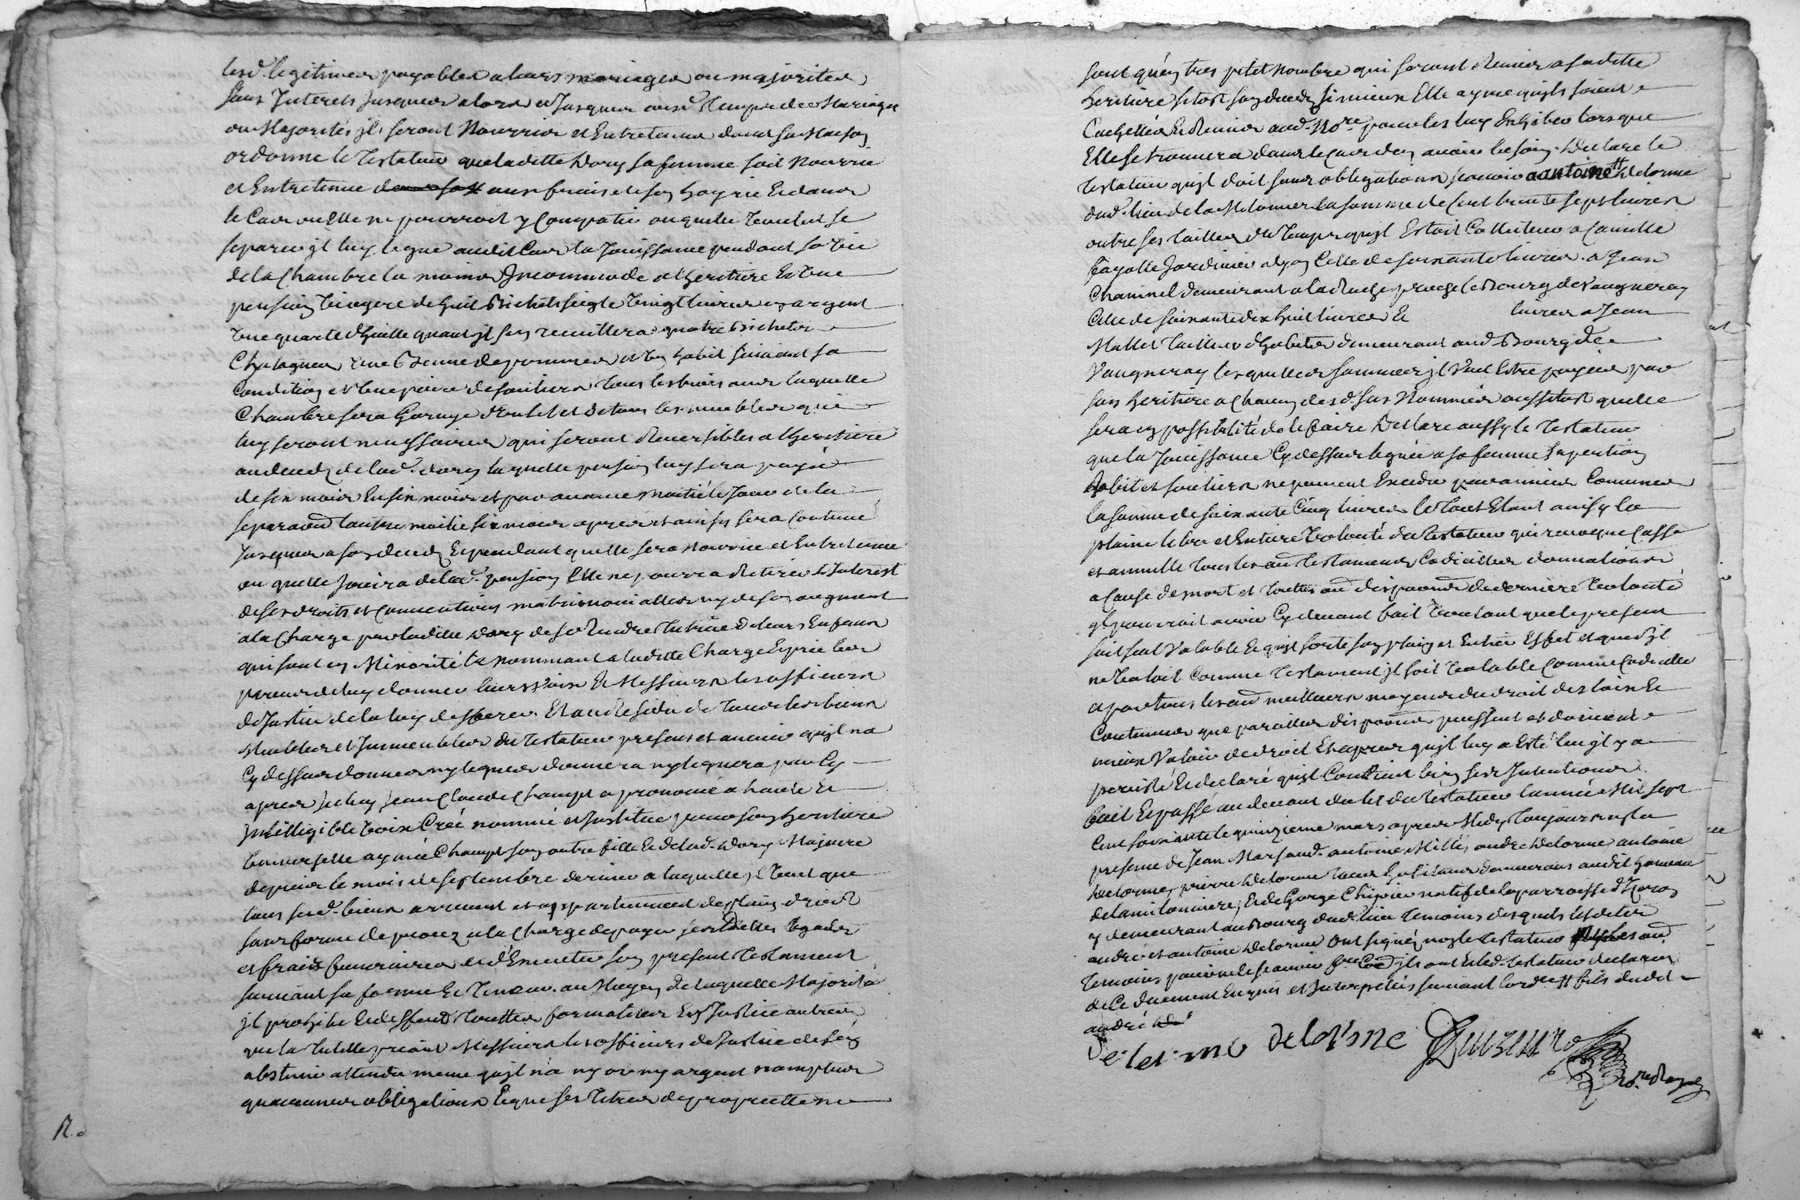 lesd. legitimes payables a leurs mariages ou majorites
sans Interets jusques alors et jusques ausd. temps de Mariages
ou Majorités jls seront Nourries et Entretenus dans sa Maison
ordonne le Testateur que laditte Dory sa femme soit Nourrie
et Entretenue aux fraix de son hoyrie Et dans
le Cas ou Elle ne pourroit y Compatir ou quelle voulut se
separer jl luy legue audit Cas la Jouissance pendant sa vie
de la Chambre la moins Incommode a lheritiere Et une
pension viagere de huit Bichets seigle vingt livres en argent
une quarte dhuille quand jl sen recuillera quatre Bichets
Chataignes une Benne de pommes et un habit suivant sa
Condition et une paire de souliers tous les trois ans laquelle
Chambre sera Garnye d'un lit et de tous les meubles qui
luy seront necessaires qui seront Reversibles a lheritiere
au deces de lad. dory laquelle pension luy sera payée
de six mois En six mois et par avance moitié le Jour de la
separaon. lautre moitié six mois apres et ainsy sera Continué
Jusques a son deces Et pendant quelle sera Nourrie et Entretenue
ou quelle Jouira de lad. pension Elle ne pourra Retirer d'Interest
de ses droits et Conventions matrimonialles ny de son augment
a la Charge par laditte Dory de se Rendre tutrice de leurs Enfans
qui sont en Minorité la nommant a laditte Charge Et prie les
parens de luy donner leurs voix Et Messieurs les officiers
de Justice de la luy defferer Et au Residu de tous les biens
Meubles et Immeubles du Testateur presens et avenir qujl na
Cy dessus donnes ny legués donnera ny leguera par Cy
apres jceluy jean Claude Champt a prononcé a haute Et
Intelligible voix Créé nommé et Institué pour son heritiere
universelle aymée Champt son autre fille Et de lad. Dory Majeure
depuis le mois de septembre dernier a laquelle jl veut que
tous sesd. biens arrivent et appartiennent de plein droit
sans forme de procez a la Charge de payer ses dettes legats
et fraix funeraires et d'Executer son present Testament
suivant sa forme Et teneur au Moyen de laquelle Majorité
jl prohibe Et deffend touttes formalités En Justice autres
que la tutelle priant Messieurs les officiers de Justice de sen
abstenir attendu meme qujl n'a ny or ny argent non plus
quaucunes obligations Et que ses titres de propriette ne
sont quen tres petit Nombre qui seront Remis a saditte
heritiere sitost son deces si mieux Elle ayme qujls soient
Cachettés Et Remis aud. No.re pour les luy Exhiber lorsque
Elle se trouvera dans le Cas den avoir besoin. Declare le
Testateur qujl doit sans obligations scavoir a antoine Delorme
dud. lieu de la Milonniere la somme de Cent trente sept livres
outre ses tailles du temps qujl Estoit Collecteur a Camille
fayolle Jardinier a lyon Celle de soixante livres a Jean
Chaninel demeurant a la Ruelle proche le Bourg de Vaugneray
Celle de soixante dix huit livres Et livres a Jean
Mallet tailleur dhabits demeurant aud. Bourg de
Vaugneray lesquelles sommes jl veut Estre payées par
son heritiere a Chacun desd. sus Nommés aussitost quelle
sera en possibilité de le faire Declare aussy le Testateur
que la Jouissance Cy dessus leguée a sa femme sa pention
habits et souliers ne peuvent Exceder par année Commune
la somme de soixante Cinq livres le tout Etant ainsy la
plaine libre et Entiere volonté du Testateur qui revoque Casse
et annulle tous les au. Testamens Codicilles donnations
a Cause de mort et touttes au. disposaons. de derniere volonté
qjl pouvroit avoir Cy devant fait voulant que le present
soit seul valable Et qujl sorte son plain et Entier Effet et que sjl
ne valoit Comme Testament jl soit valable Comme Codicille
et par tous les au. meilleurs moyens du droit des loix Et
Coutumes que pareilles disposaons. peuvent et doivent
mieux valoir de droit Et apres qujl luy a Esté leu jl y a
persisté Et declaré qujl Contient bien ses Intentions.
fait Et passé au devant du lit du Testateur lannée Mil sept
Cent soixante le quinzieme mars apres Midy toujours en la
presence de Jean Marsaud. antoine Millet, andré Delorme antoine
Delorme, pierre Delorme tous habitans demeurans audit hameau
de la milonniere; Et de George Chipier natif de la parroisse d'Izeron
y demeurant au Bourg dud. lieu temoins desquels lesdits
andré et antoine Delorme ont signé, non le Testateur les au.
Temoins pour ne le scavoir jls ont Et led. Testateur declarés
de Ce duement Enquis et Interpellés suivant lord.ce
andré
delorme delorme
No.re Royal